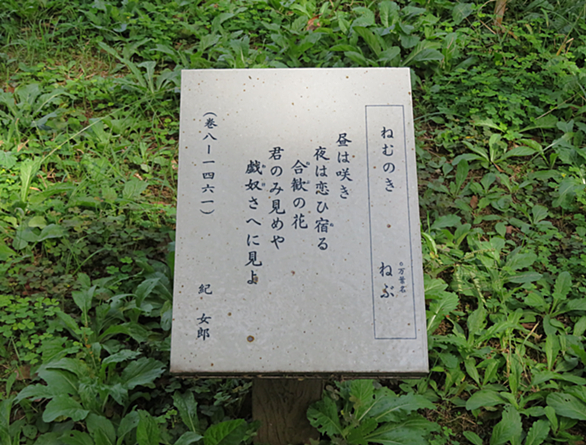 ねむのき ○万葉名 ねぶ
昼は咲き
夜は恋ひ宿る
合歓の花
君のみ見めや
戯奴さへに見よ
(巻八ー一四六一)
紀 女郎